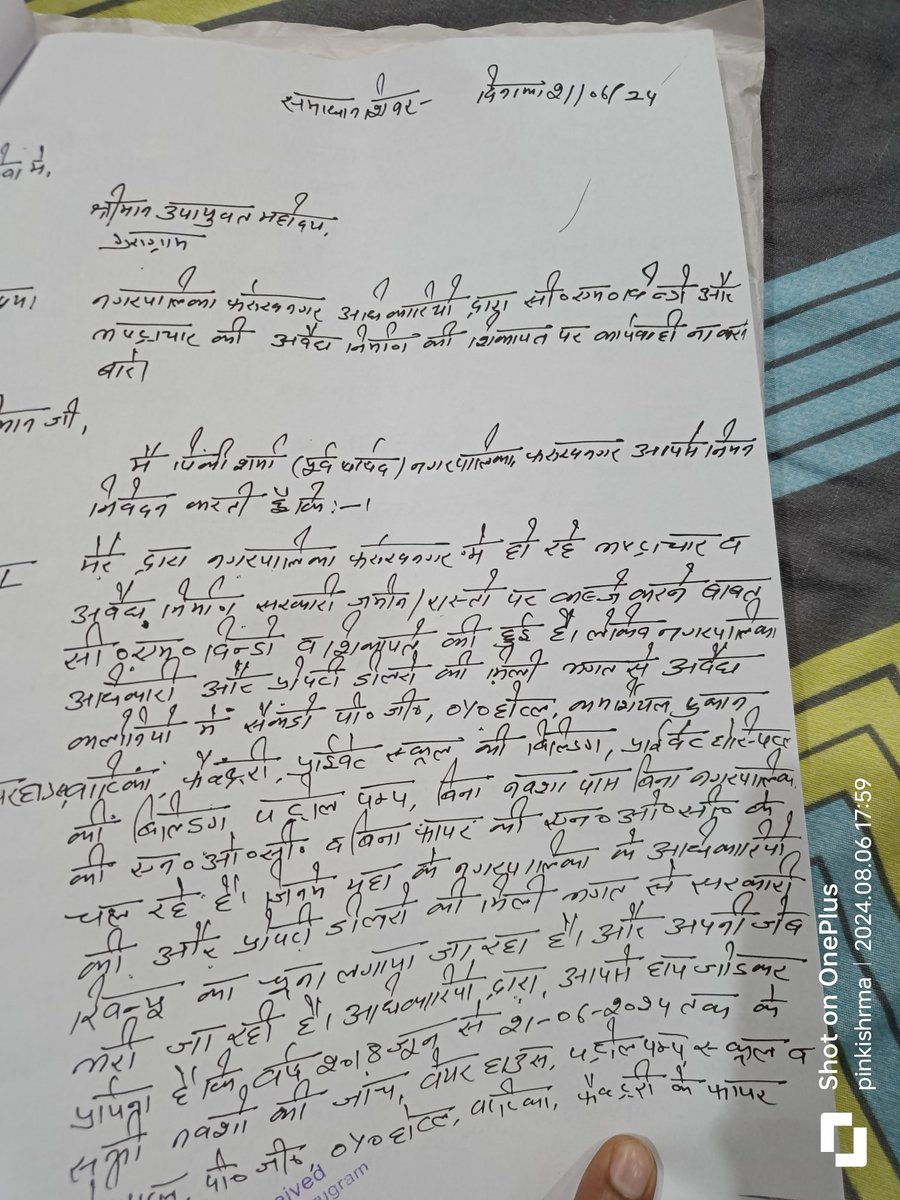 समाधान शिविर- दिनांक 21/06/24
सेवा में,
श्रीमान उपायुक्त महोदय,
गुरुग्राम
नगरपालिका फरुखनगर अधिकारियों द्वारा सी०एम०विन्डो और
भ्रष्टाचार की अवैध निर्माण की शिकायत पर कार्यवाही ना करने
बारे।
श्रीमान जी,
मैं पिंकी शर्मा (पूर्व पार्षद) नगरपालिका, फरुखनगर आपसे निम्न
निवेदन करती हूँ कि:-।
मेरे द्वारा नगरपालिका फरुखनगर में हो रहे भ्रष्टाचार व
अवैध निर्माण सरकारी जमीन/रास्तों पर कब्जे करने बाबत
सी०एम०विन्डो व शिकायतें की हुई है। लेकिन नगरपालिका
अधिकारी और प्रोपर्टी डीलरों की मिली भगत से अवैध
कलोनियों में सैकडो पी०जी०, OYO होटल, कमर्शियल दुकान
वाटिका, फैक्ट्री, प्राईवेट स्कूल की बिल्डिंग, प्राईवेट होस्पिटल
की बिल्डिंग पेट्रोल पम्प, बिना नक्शा पास बिना नगरपालिका
की एन०ओ०सी० व बिना फायर की एन०ओ०सी० के
चल रहे है। जिनमे यहा के नगरपालिका के अधिकारियों
की और प्रोपर्टी डीलरो की मिली भगत से सरकारी
रेवन्यू का चूना लगाया जा रहा है। और अपनी जेब
भरी जा रही है। अधिकारियों द्वारा, आपसे हाथ जोडकर
प्रार्थना है कि वर्ष 2018 जून से 21-06-2024 तक के
सभी नक्शों की जांच, वेयर हाउस, पेट्रोल पम्प स्कूल व
पी०जी०, OYO होटल, वाटिका, फैक्ट्री के फायर
Shot on OnePlus
pinkishrma | 2024.08.06 17:59